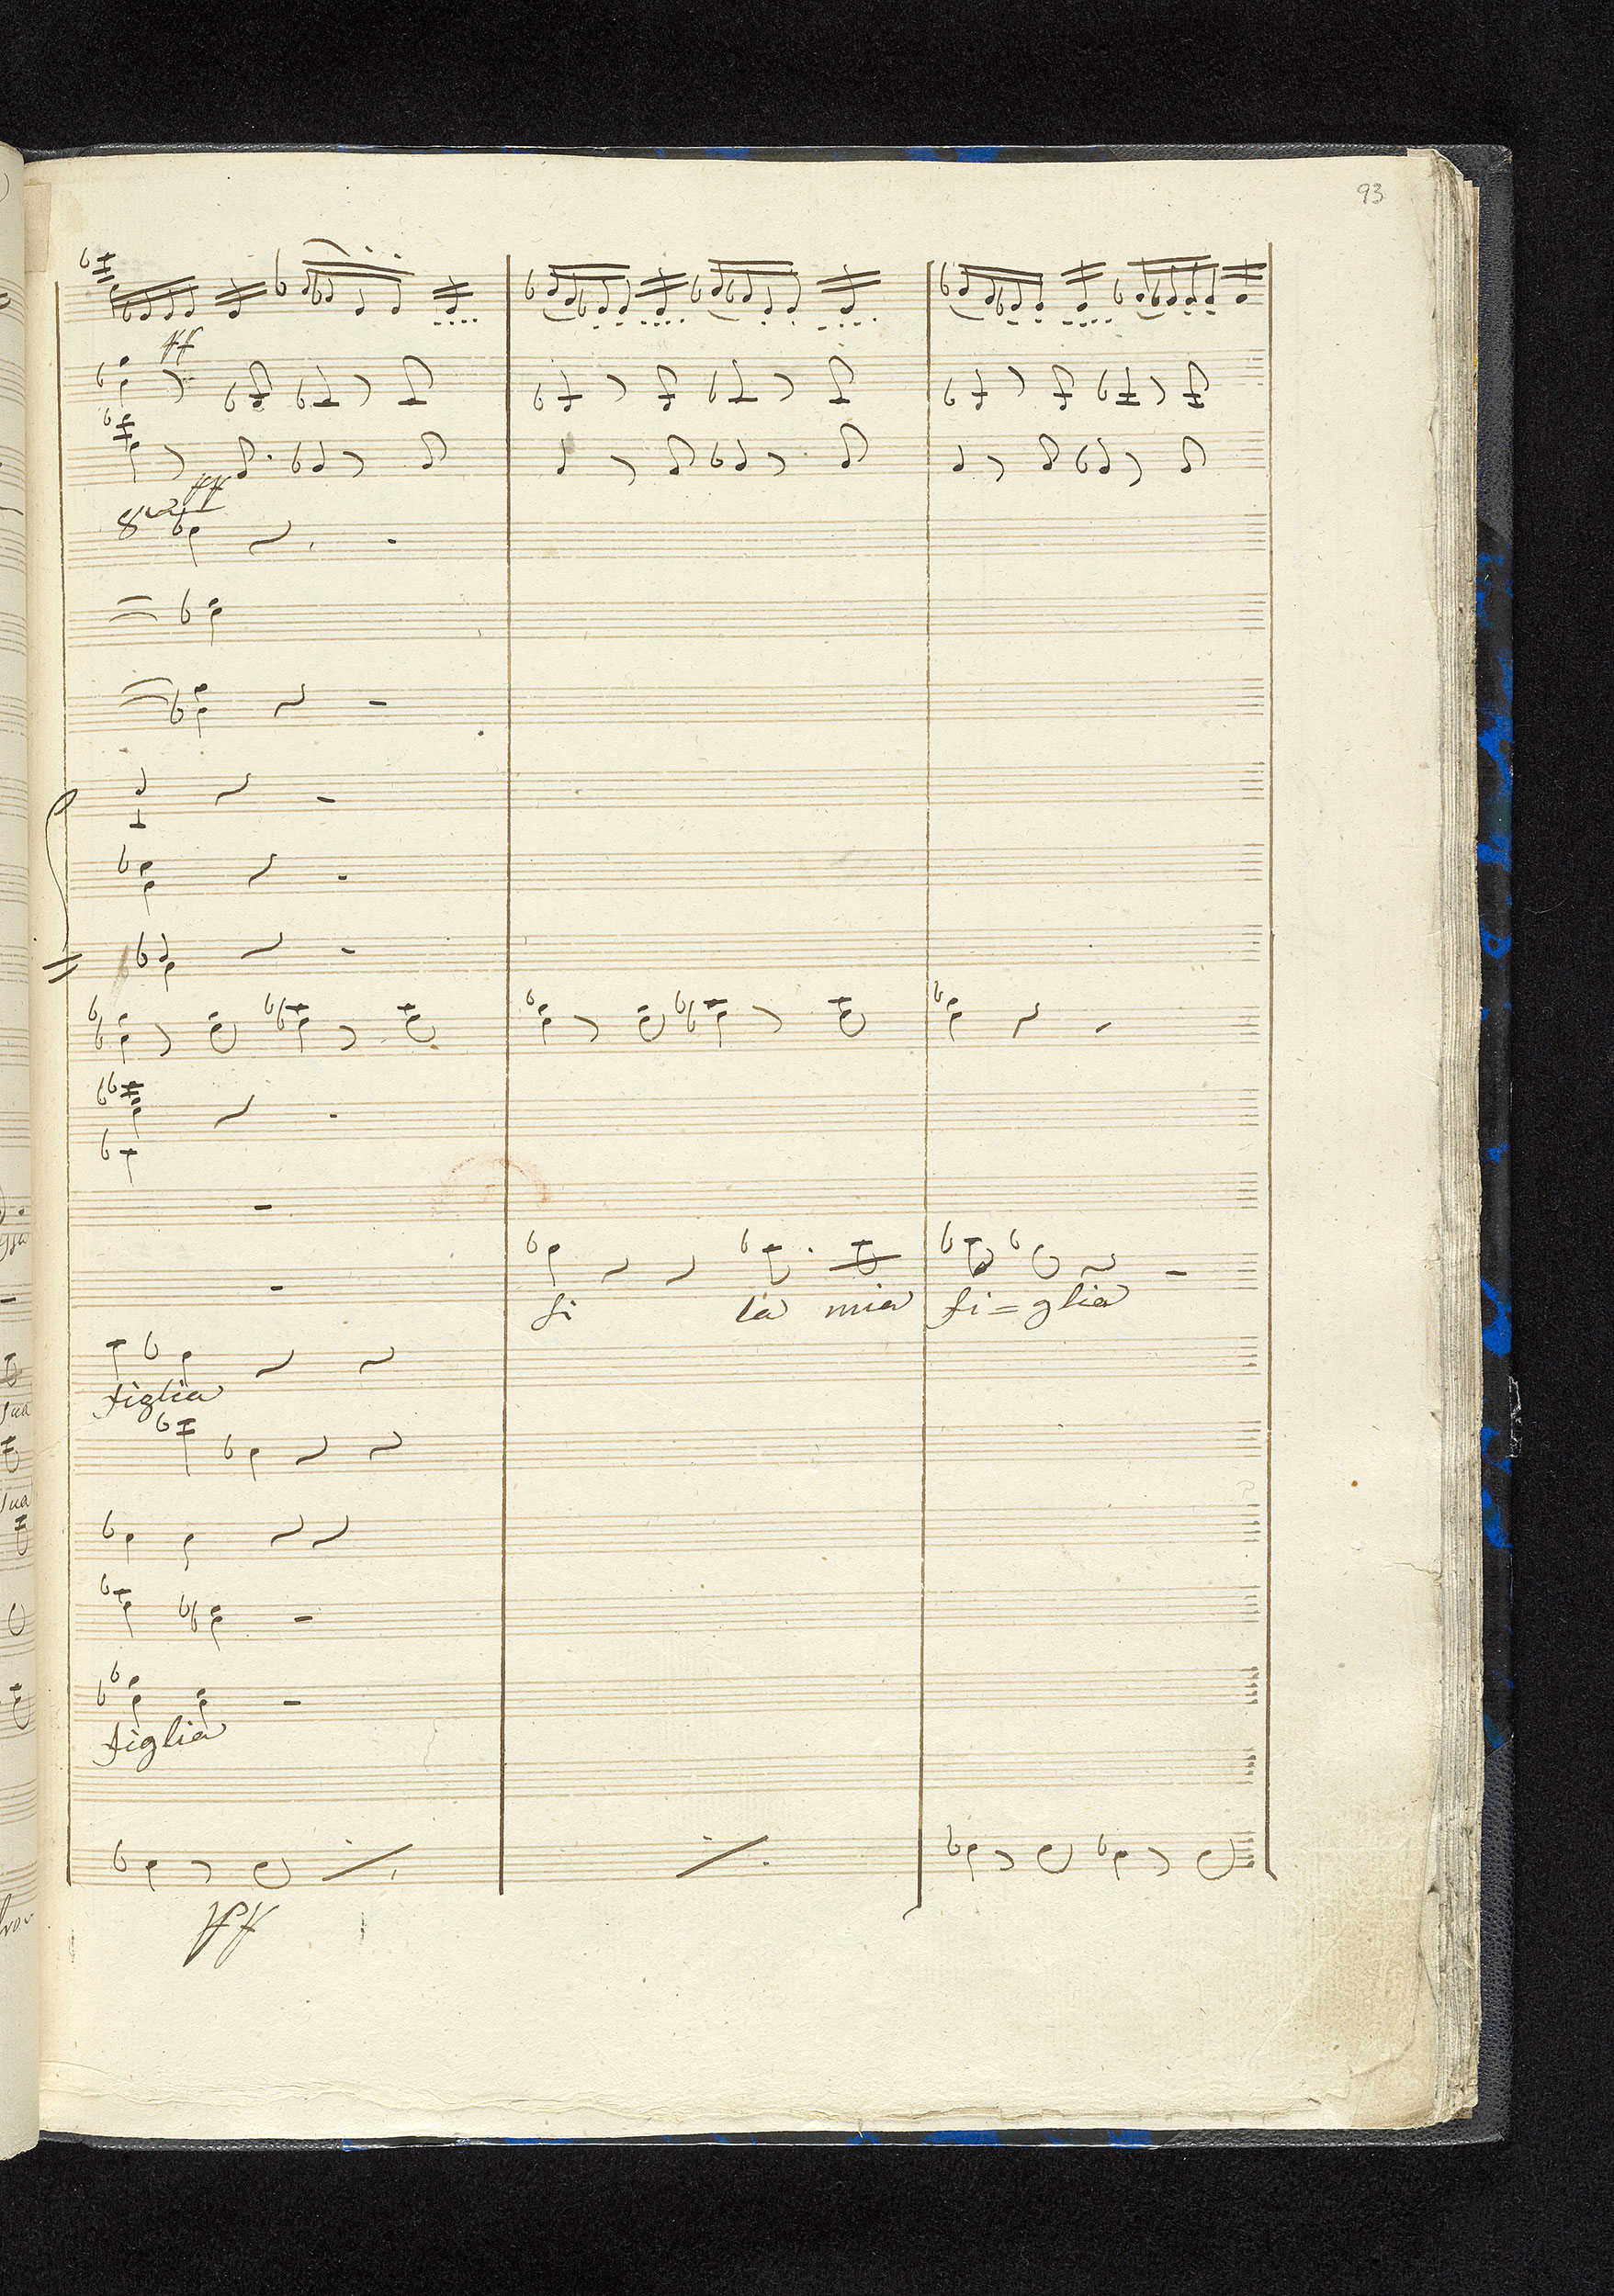 93
ff
ff
8va
si la mia fi=glia
figlia
figlia
ff